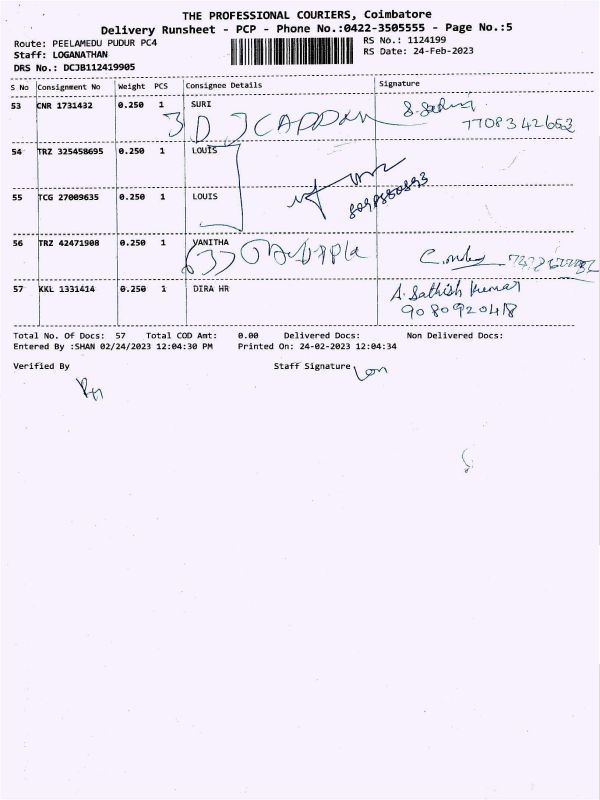 THE PROFESSIONAL COURIERS, Coimbatore
Delivery Runsheet - PCP - Phone No.:0422-3505555 - Page No.:5
Route: PEELAMEDU PUDUR PC4
RS No.: 1124199
Staff: LOGANATHAN
RS Date: 24-Feb-2023
DRS No.: DCJB112419905
S No Consignment No Weight PCS Consignee Details Signature
53 CNR 1731432 0.250 1 SURI
7708342653
54 TRZ 325458695 0.250 1 LOUIS
55 TCG 27009635 0.250 1 LOUIS
56 TRZ 42471908 0.250 1 VANITHA
57 KKL 1331414 0.250 1 DIRA HR A. Sathish Kumar
9080920418
Total No. Of Docs: 57 Total COD Amt: 0.00 Delivered Docs: Non Delivered Docs:
Entered By :SHAN 02/24/2023 12:04:30 PM Printed On: 24-02-2023 12:04:34
Verified By Staff Signature